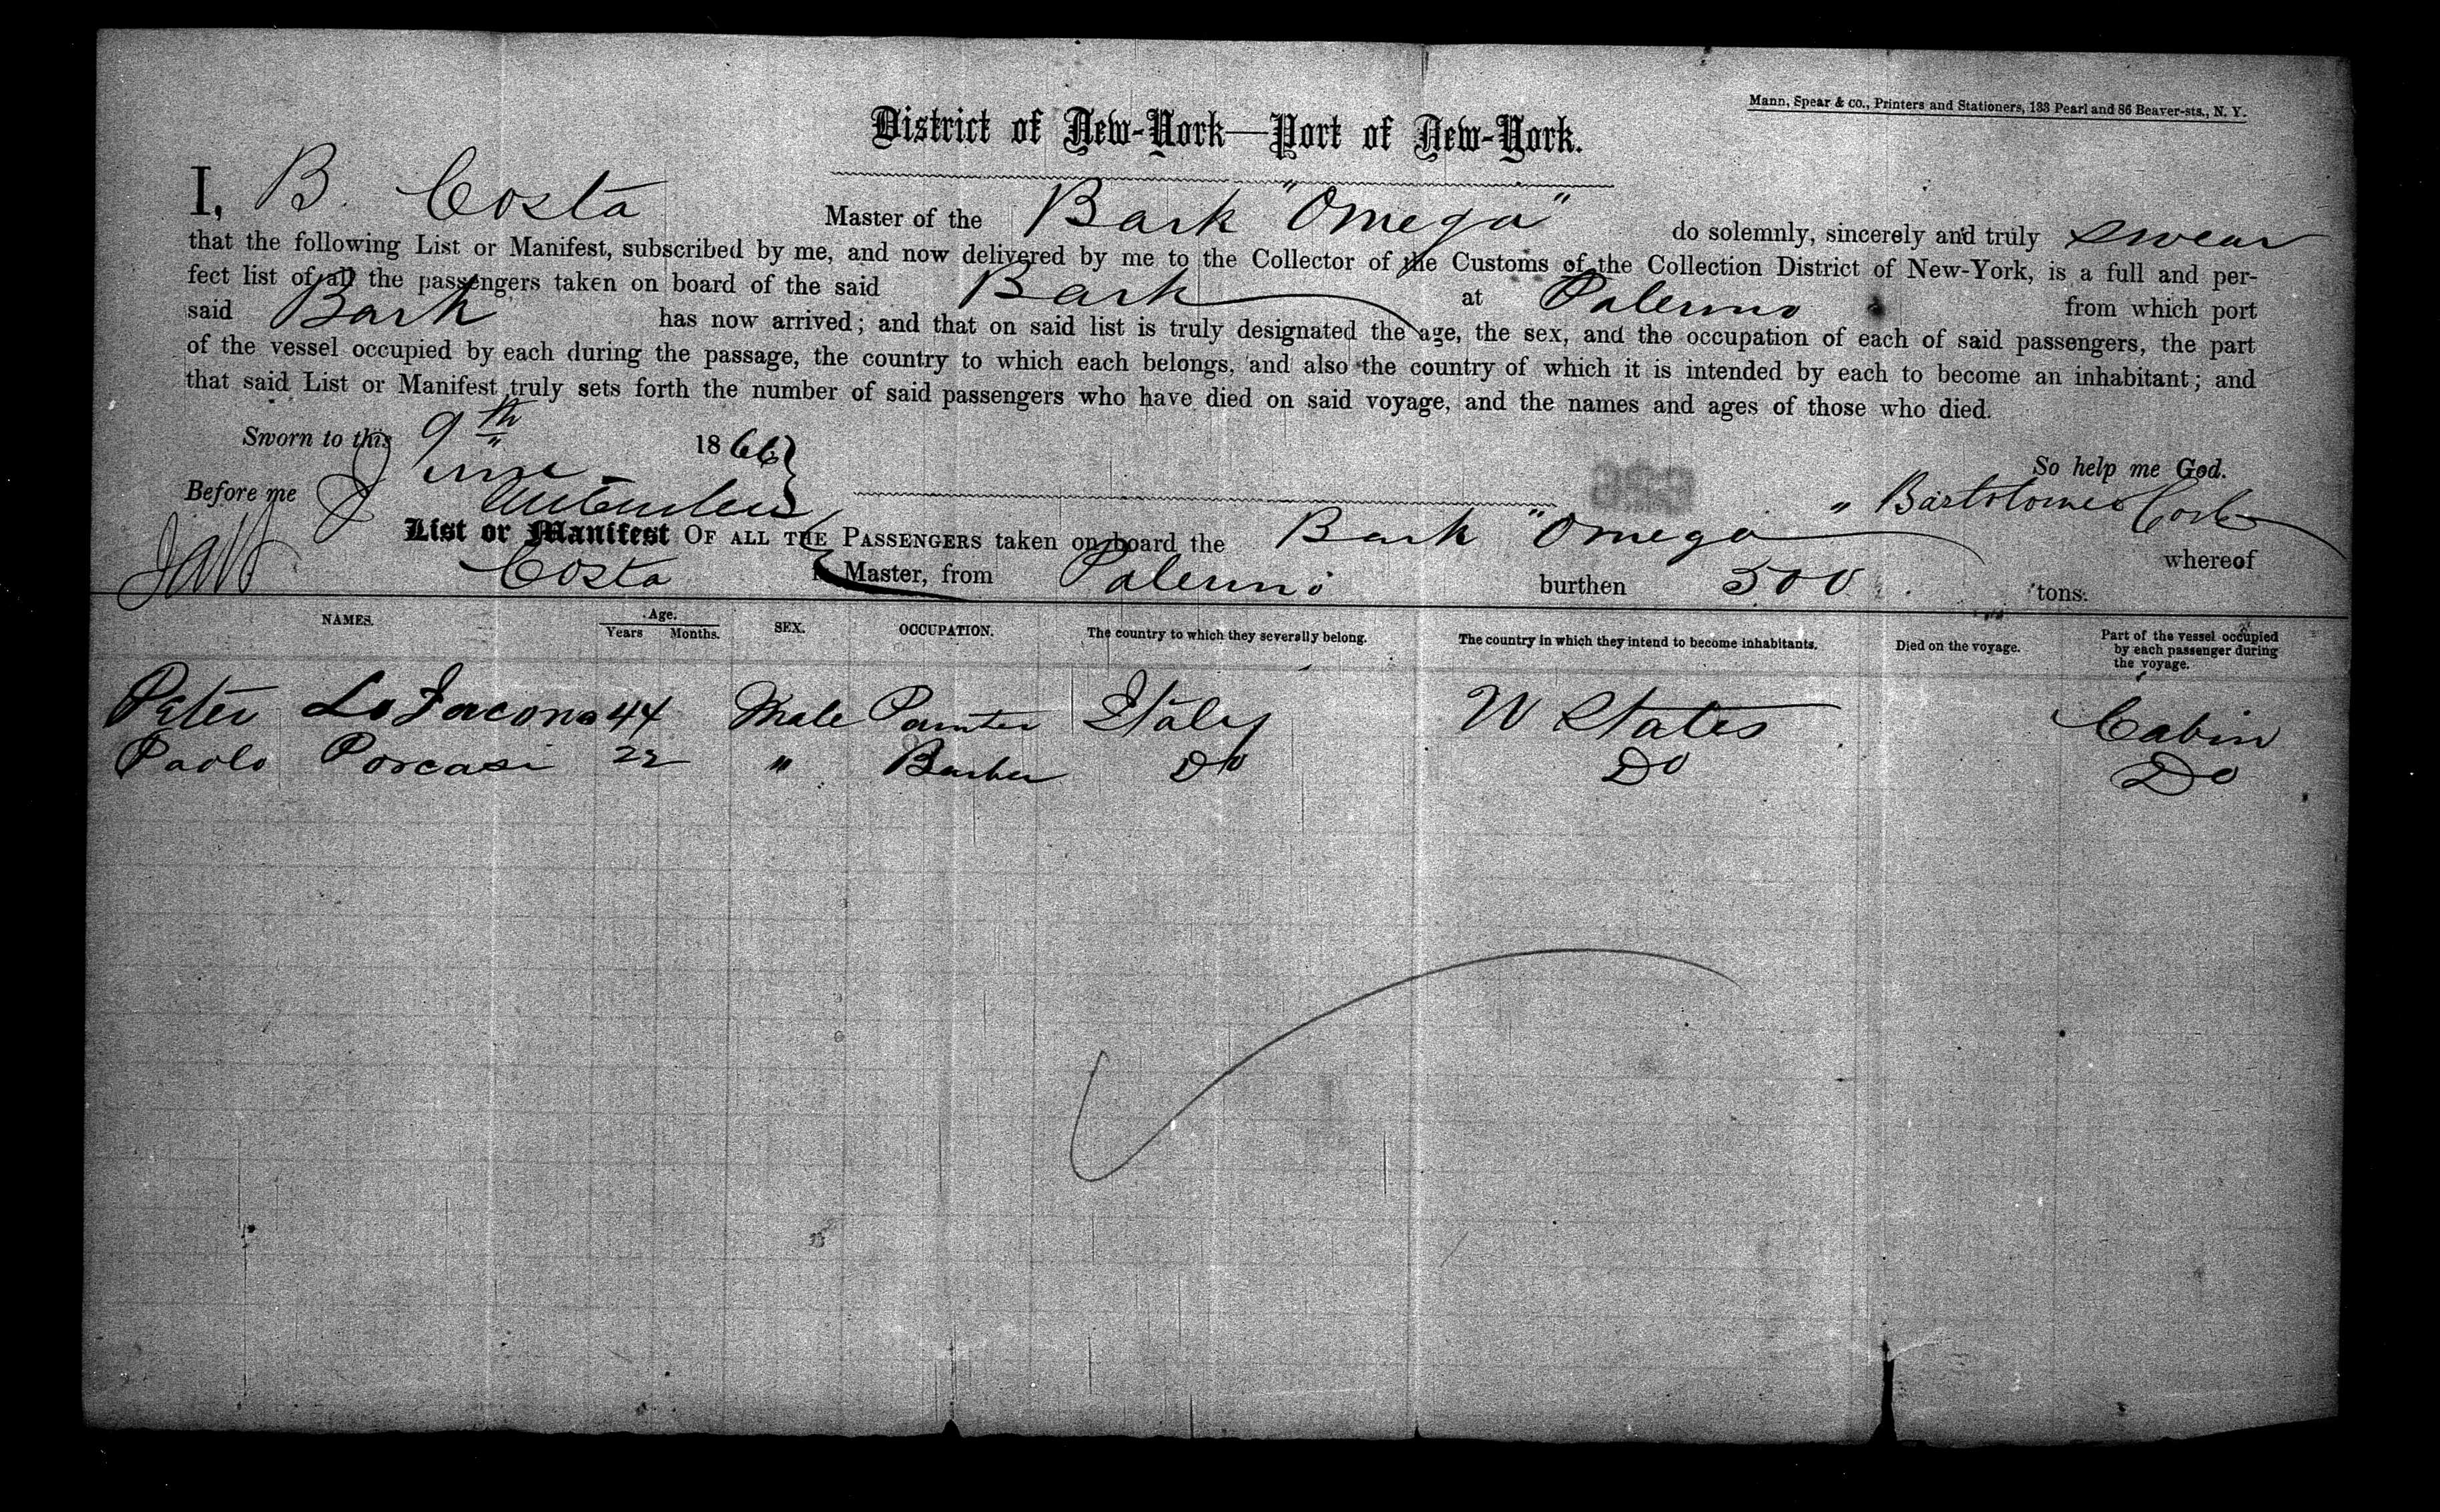 Mann, Spear & Co., Printers and Stationers, 133 Pearl and 86 Beaver-sts., N. Y.
District of New-York—Port of New-York.
I, B. Costa Master of the Bark "Omega" do solemnly, sincerely and truly swear
that the following List or Manifest, subscribed by me, and now delivered by me to the Collector of the Customs of the Collection District of New-York, is a full and per-
fect list of all the passengers taken on board of the said Bark at Palermo from which port
said Bark has now arrived; and that on said list is truly designated the age, the sex, and the occupation of each of said passengers, the part
of the vessel occupied by each during the passage, the country to which each belongs, and also the country of which it is intended by each to become an inhabitant; and
that said List or Manifest truly sets forth the number of said passengers who have died on said voyage, and the names and ages of those who died.
Sworn to this 9th June 1866
So help me God.
Before me
Bartolomeo Costa
List or Manifest OF ALL THE PASSENGERS taken on board the Bark "Omega" whereof
Costa is Master, from Palermo burthen 500 tons.
NAMES. Age. Years Months. SEX. OCCUPATION. The country to which they severally belong. The country in which they intend to become inhabitants. Died on the voyage. Part of the vessel occupied by each passenger during the voyage.
Peter Lo Jacono 44 Male Painter Italy U States Cabin
Paolo Porcasi 22 " Barber Do Do Do